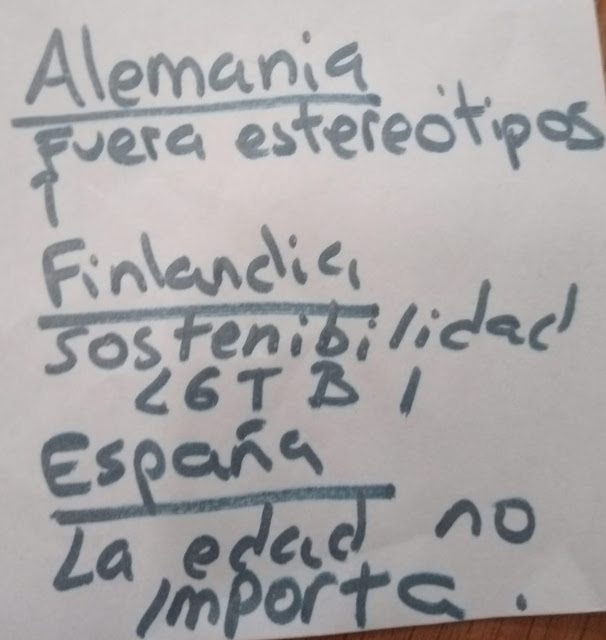 Alemania
Fuera estereótipos
Finlandia
sostenibilidad
LGTBI
España
La edad no
importa.